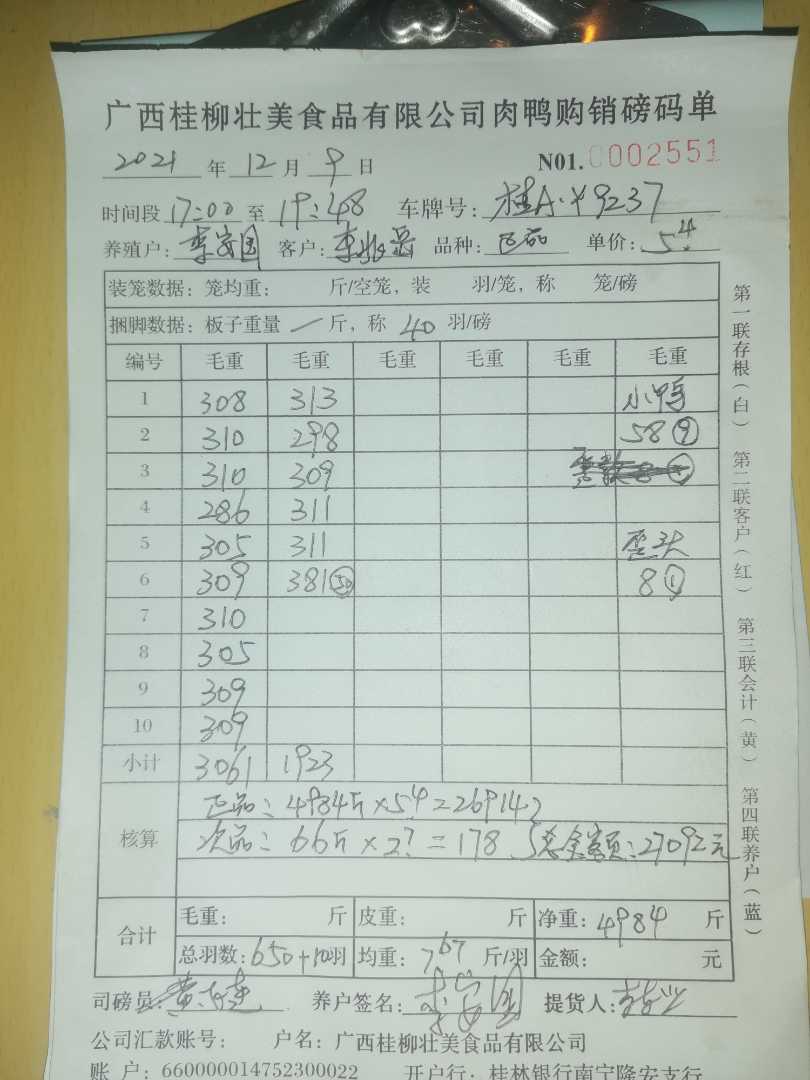 广西桂柳壮美食品有限公司肉鸭购销磅码单
2021 年 12 月 9 日 N01. 0002551
时间段 17:00 至 19:48 车牌号: 桂A·Y9237
养殖户: 李安国 客户: 品种: 正品 单价: 5.4
装笼数据: 笼均重: 斤/空笼, 装 羽/笼, 称 笼/磅
捆脚数据: 板子重量 一 斤, 称 40 羽/磅
编号 毛重 毛重 毛重 毛重 毛重 毛重
1 308 313 小鸭
2 310 298 58⑨
3 310 309
4 286 311
5 305 311 歪头
6 309 381㊿ 8①
7 310
8 305
9 309
10 309
小计 3061 1923
核算 正品: 4984斤×5.4=26914
次品: 66斤×2.7=178 总金额: 27092元
合计 毛重: 斤 皮重: 斤 净重: 4984 斤
总羽数: 650+10羽 均重: 7.67 斤/羽 金额: 元
司磅员: 养户签名: 李安国 提货人:
公司汇款账号: 户名: 广西桂柳壮美食品有限公司
账 户: 660000014752300022 开户行: 桂林银行南宁隆安支行
第一联存根(白) 第二联客户(红) 第三联会计(黄) 第四联养户(蓝)